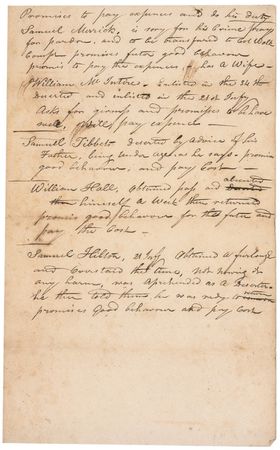 Promises to pay expences and do his duty
Samuel Merrick, is sorry for his Crime prays
for pardon, and to be transfured to Col
Comp promises future good behaviour
promis to pay the expences — has A Wife —
William Mc Intire, Enlisted in the 34th
deserted and enlisted in the 21st Infy
Asks for givness and promises to behave
well, Will pay expences —
Samuel Tibbets deserted by advice of his
Father, being under age as he says promis
good behaviour, and pay Cost —
William Hall, obtained pass and absented
himself A Week then returned
promis good behaviour for the future and
pay the Cost —
Samuel Hilton, 21 Infy Obtained a furlong
and Overstaid the time, not knowing
any harm, was Aprehended as A Deserter
he then told them he was redy to return
promises Good behaviour and pay Cost